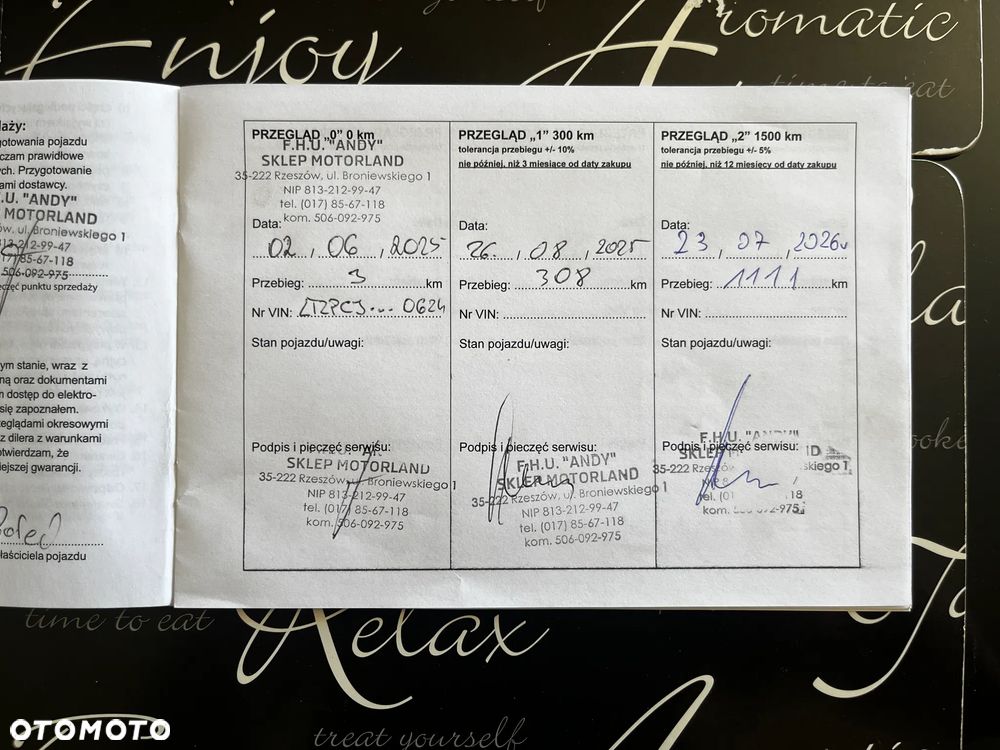 Enjoy
Aromatic
time to eat
aży:
gotowania pojazdu
czam prawidłowe
ch. Przygotowanie
ami dostawcy.
.U. "ANDY"
MOTORLAND
ów, ul. Broniewskiego 1
813-212-99-47
17) 85-67-118
506-092-975
zęć punktu sprzedaży
ym stanie, wraz z
ną oraz dokumentami
n dostęp do elektro-
się zapoznałem.
zeglądami okresowymi
z dilera z warunkami
otwierdzam, że
iejszej gwarancji.
łaściciela pojazdu
PRZEGLĄD „0” 0 km
F.H.U. "ANDY"
SKLEP MOTORLAND
35-222 Rzeszów, ul. Broniewskiego 1
NIP 813-212-99-47
tel. (017) 85-67-118
kom. 506-092-975
Data:
02, 06, 2025
Przebieg: 3 km
Nr VIN: LTZPCJ... 0624
Stan pojazdu/uwagi:
Podpis i pieczęć serwisu:
SKLEP MOTORLAND
35-222 Rzeszów, ul. Broniewskiego 1
NIP 813-212-99-47
tel. (017) 85-67-118
kom. 506-092-975
PRZEGLĄD „1” 300 km
tolerancja przebiegu +/- 10%
nie później, niż 3 miesiące od daty zakupu
Data:
26. , 08, 2025
Przebieg: 308 km
Nr VIN:
Stan pojazdu/uwagi:
Podpis i pieczęć serwisu:
F.H.U. "ANDY"
SKLEP MOTORLAND
35-222 Rzeszów, ul. Broniewskiego 1
NIP 813-212-99-47
tel. (017) 85-67-118
kom. 506-092-975
PRZEGLĄD „2” 1500 km
tolerancja przebiegu +/- 5%
nie później, niż 12 miesięcy od daty zakupu
Data:
23, 07, 2026
Przebieg: 1111 km
Nr VIN:
Stan pojazdu/uwagi:
Podpis i pieczęć serwisu:
F.H.U. "ANDY"
35-222
skiego 1
NIP 8
tel. (01 18
kom. 975
time to eat
Relax
treat yourself
OTOMOTO